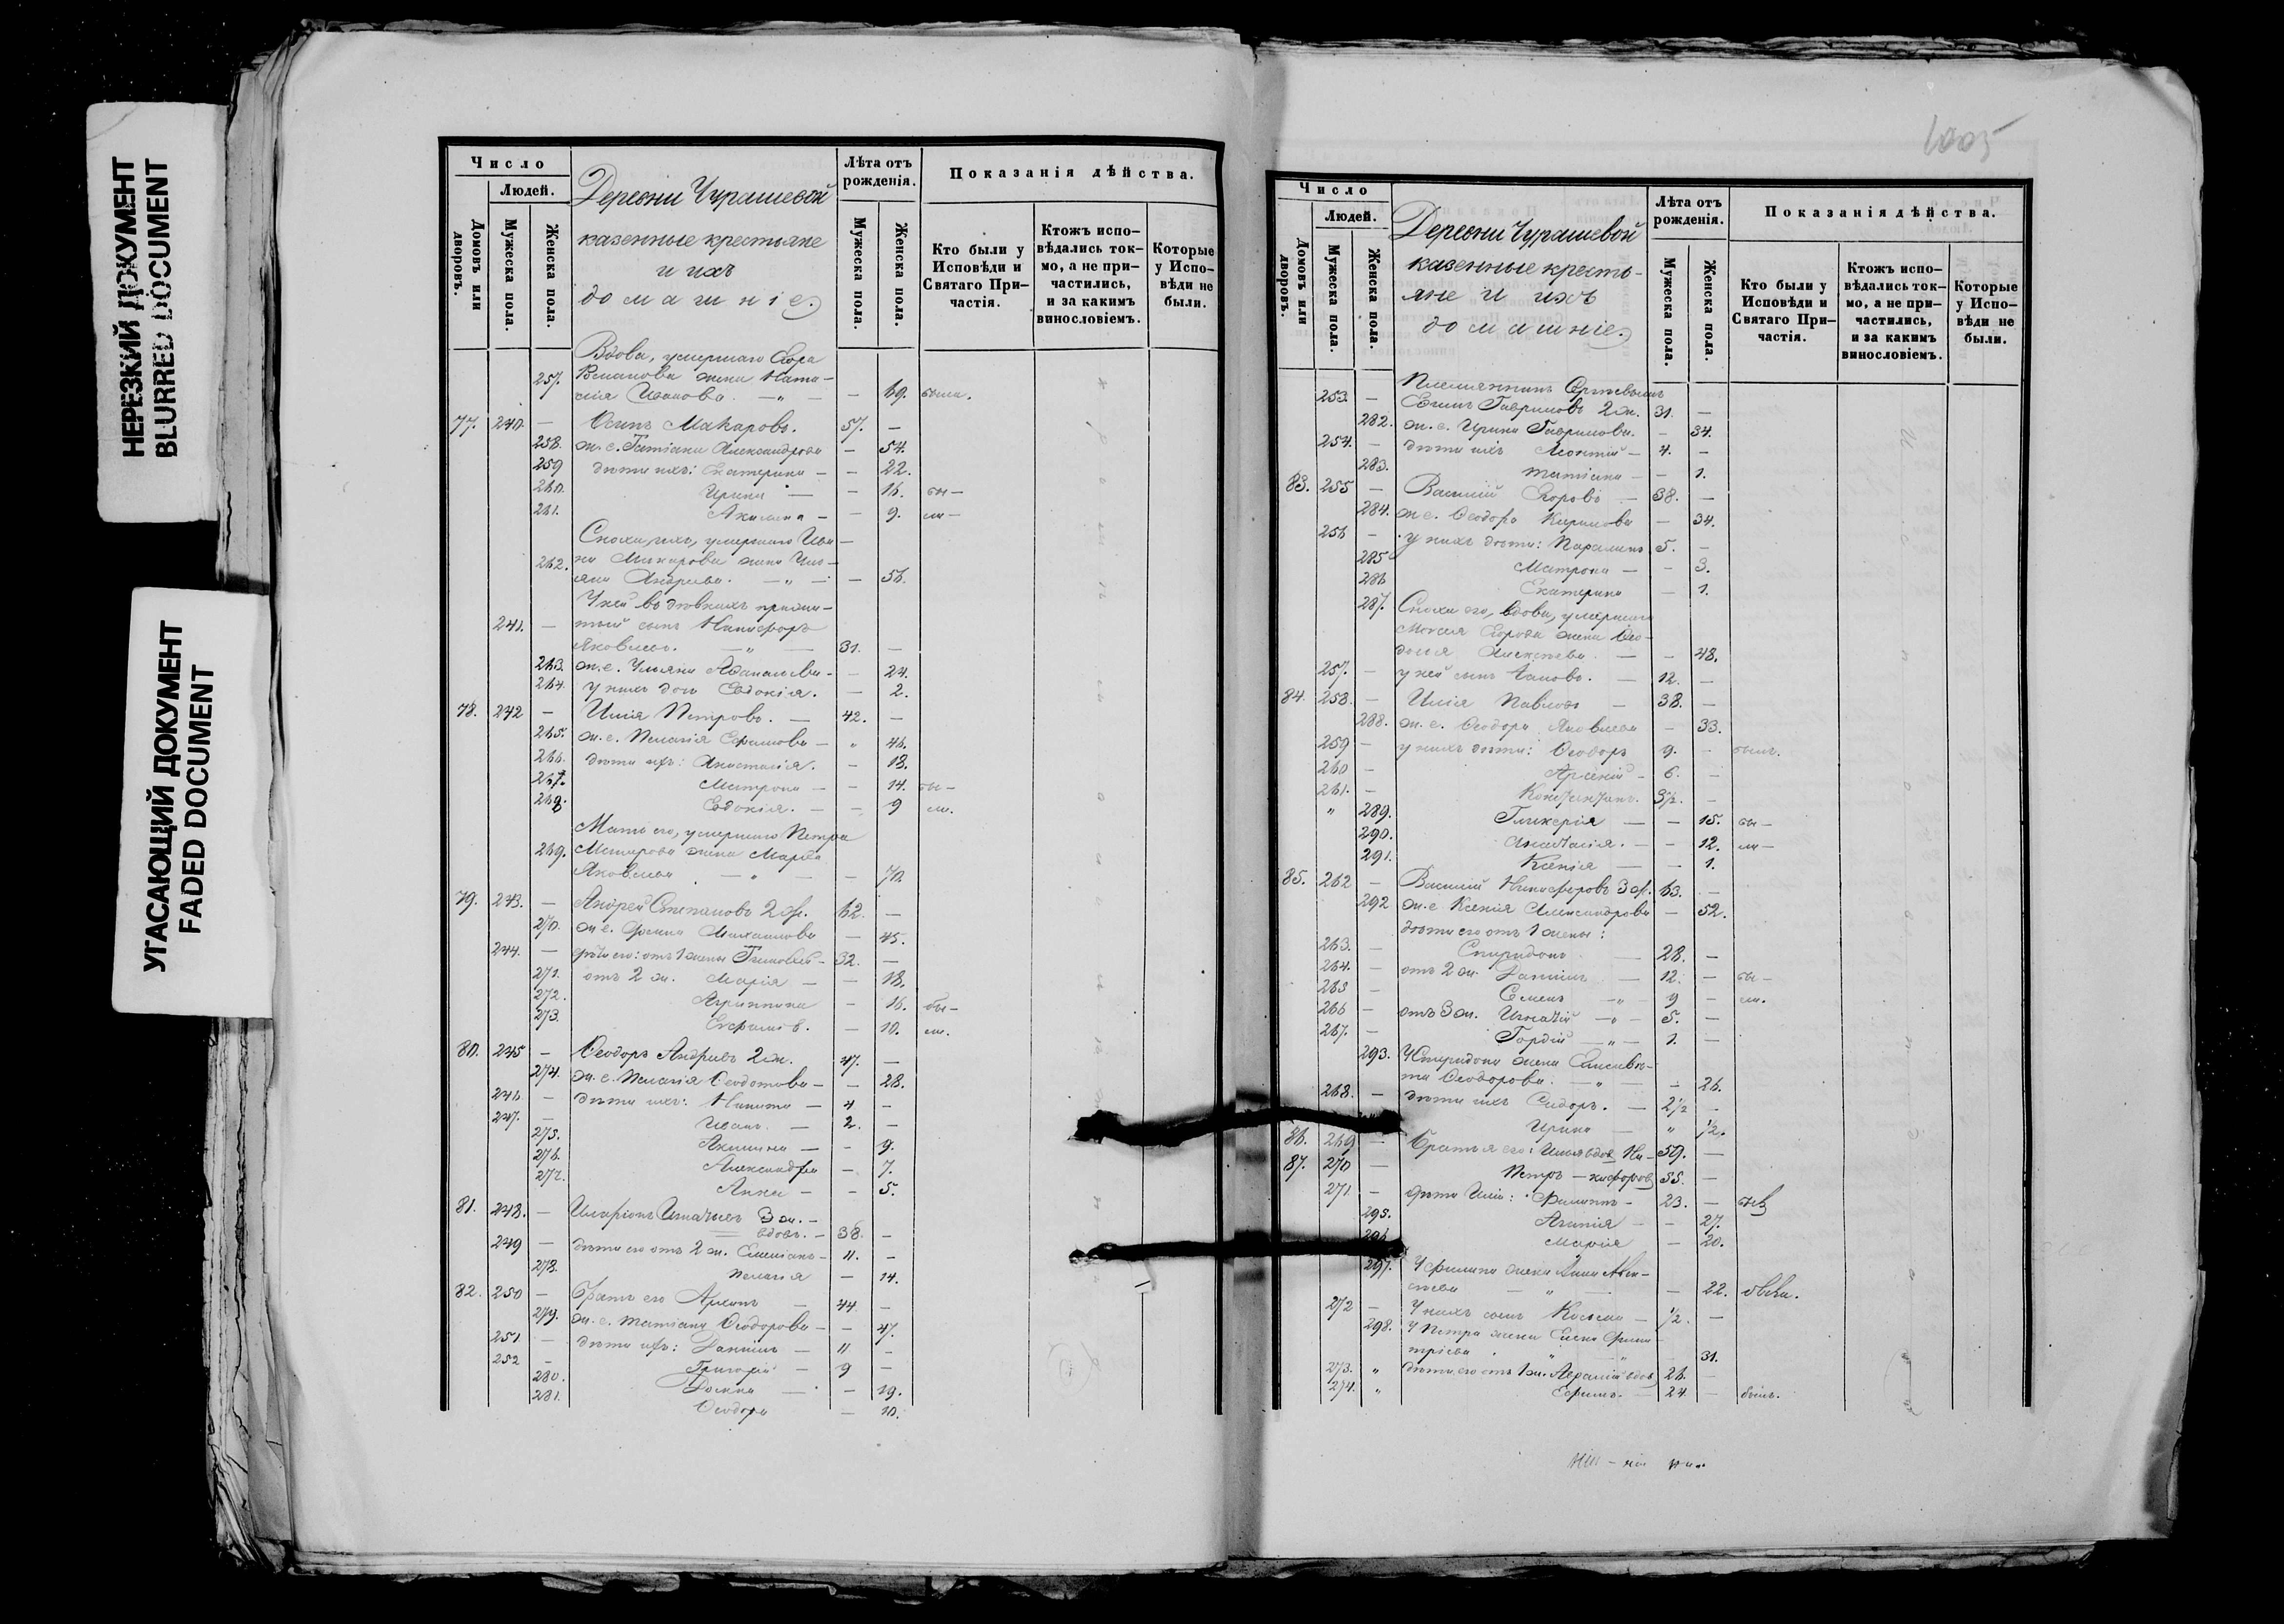 НЕРЕЗКИЙ ДОКУМЕНТ
BLURRED DOCUMENT
УГАСАЮЩИЙ ДОКУМЕНТ
FADED DOCUMENT
Число
Людей.
Домовъ или дворовъ.
Мужеска пола.
Женска пола.
Деревни Чурашевой
казенные крестьяне
и ихъ
домашніе
Лѣта отъ рожденія.
Мужеска пола.
Женска пола.
Показанія дѣйства.
Кто были у Исповѣди и Святаго При-
частія.
Ктожъ испо-
вѣдались ток-
мо, а не при-
частились,
и за какимъ
винословіемъ.
Которые у Испо-
вѣди не были.
Вдова, умершаго Егора
257. жена Ната-
лія Иванова. — 69. была.
77. 240. — Осипъ Макаровъ. 57. —
258. ж. е. Татіана Александрова — 54.
259 дѣти ихъ: Екатерина — — 22.
260. Ирина — — 16. бы-
261. Акилина — — 9. ли —
Сноха ихъ, умершаго Ива-
262. на Макарова жена Улі-
яна Андреева. — — 56.
У ней въ дѣвкахъ прижи-
241. — тый сынъ Никифоръ
Яковлевъ. — 31. —
263. ж. е. Ульяна Аѳанасьева — — 24.
264. у нихъ дочь Евдокія. — 2.
78. 242 — Илія Петровъ. — 42. —
265. ж. е. Пелагія Ефимова — 46.
266. дѣти ихъ: Анастасія. — 18.
267. Матрона — — 14. бы —
268. Евдокія. — — 9 ли.
Мать его, умершаго Петра
269. жена Марѳа
Яковлева — — 70.
79. 243. — Андрей Степановъ 2 ж. 62. —
270. ж. е. Михаилова — 45.
244. — дѣти его: отъ 1 жены Тимоѳей — 32. —
271. отъ 2 ж. Марія — — 18.
272. Агриппина — 16. бы —
273. — 10. ли.
80. 245 — Ѳеодоръ Андреевъ 2 ж. 47. —
274. ж. е. Пелагія Ѳедотова — — 28.
246 — дѣти ихъ: Никита — 4 —
247. — Иванъ. — 2. —
275. Акилина — — 9.
276. Александра — 7.
277. Анна — — 5.
81. 248. — Иларіонъ Игнатьевъ 3 ж. —
вдовъ. — 38. —
249 — дѣти его отъ 2 ж. Емеліанъ — 11. —
278. Пелагія — 14.
82. 250 — Братъ его Архипъ — 44. —
279. ж. е. Татіана Ѳеодорова — — 47.
251 — дѣти ихъ: Даніилъ — 11 —
252 — Григорій — 9 —
280. — — 19.
281. Ѳеодора — 10.
1005
Число
Людей.
Домовъ или дворовъ.
Мужеска пола.
Женска пола.
Деревни Чурашевой
казенные кресть-
яне и ихъ
домашніе
Лѣта отъ рожденія.
Мужеска пола.
Женска пола.
Показанія дѣйства.
Кто были у Исповѣди и Святаго При-
частія.
Ктожъ испо-
вѣдались ток-
мо, а не при-
частились,
и за какимъ
винословіемъ.
Которые у Испо-
вѣди не были.
Племянникъ
253. — Гавриловъ 2 ж. 31. —
282. ж. е. Ирина Гаврилова. — 34.
254. — дѣти ихъ — 4. —
283. Татіана — — 1.
83. 255 — Василій Егоровъ — 38. —
284. ж. е. Ѳеодора Кирилова — 34.
256 — у нихъ дѣти: 5. —
285 Матрона — — 3.
286 Екатерина — 1.
287. Сноха его, вдова, умершаго
Моисея Егорова жена Ѳео-
досія Алексѣева. — — 48.
257. — у ней сынъ — 12. —
84. 258. — Илія Павловъ — 38. —
288. ж. е. Ѳеодора Яковлева — 33.
259 — у нихъ дѣти: Ѳеодоръ 9. — былъ.
260 — Арсеній — 6. —
261. — Константинъ. 3½. —
" 289. Гликерія — — 15. бы —
290. Анастасія. — — 12. ли —
291. Ксенія — — 1.
85. 262 — Василій Никифоровъ 3 ж. 63. —
292 ж. е. Ксенія Александрова — 52.
дѣти его отъ 1 жены:
263. — Спиридонъ — 28. —
264. — отъ 2 ж. Даніилъ — 12. — бы —
265 — Семенъ — 9 — ли.
266 — отъ 3 ж. Игнатій — 5. —
267. — Гордій — 1. —
293. У Спиридона жена Елисаве-
та Ѳеодорова. — — 26.
268. — дѣти ихъ Сидоръ. — 2½ —
Ирина — " ½.
86. 269 — Братья его: Илья вдов. Ни- 59. —
87. 270 — Петръ — кифоровы 55. —
271 — дѣти Иліи: Филиппъ — 23. —
295. Агапія — — 27.
296. Марія — 20.
297. У Филиппа жена Анна
— 22.
272 — У нихъ сынъ Косьма — ½. —
298. У Петра жена Елена
31.
273. " дѣти его отъ 1 ж. вдов. 26. —
274. " Ефимъ. — 24 — былъ.